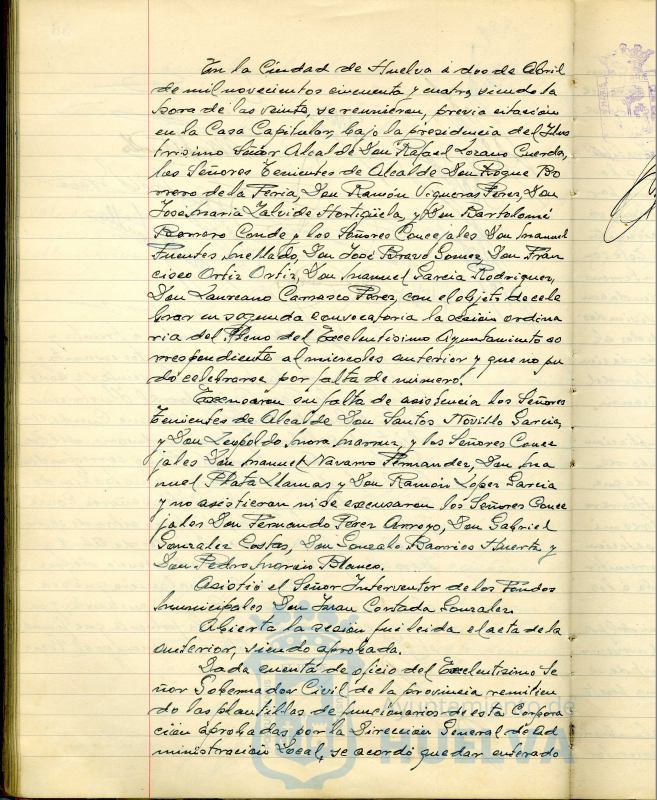 En la Ciudad de Huelva á dos de Abril
de mil novecientos cincuenta y cuatro, siendo la
hora de las veinte, se reunieron, previa citación
en la Casa Capitular, bajo la presidencia del Ilus
trisimo Señor Alcalde Don Rafael Lozano Cuerda,
los Señores Tenientes de Alcalde Don Roque Bo
rrero de la Feria, Don Ramón Vigueras Perez, Don
José Maria Zalvide Hortigüela, y Don Bartolomé
Borrero Conde y los Señores Concejales Don Manuel
Fuentes Mellado, Don José Bravo Gomez, Don Fran
cisco Ortiz Ortiz, Don Manuel Garcia Rodriguez,
Don Laureano Carrasco Perez, con el objeto de cele
brar en segunda convocatoria la sesion ordina
ria del Pleno del Excelentisimo Ayuntamiento co
rrespondiente al miercoles anterior y que no pu
do celebrarse por falta de número.
Excusaron su falta de asistencia los Señores
Tenientes de Alcalde Don Santos Novillo Garcia,
y Don Leopoldo Mora y los Señores Conce
jales Don Manuel Navarro Fernandez, Don Ma
nuel Plata Llamas y Don Ramón López Garcia
y no asistieron ni se excusaron los Señores Conce
jales Don Fernando Perez Arroyo, Don Gabriel
Gonzalez Costas, Don Gonzalo Barrios Huerta y
Don Pedro Blanco.
Asistió el Señor Interventor de los Fondos
Municipales Don Juan Cortada Gonzalez
Abierta la sesión fué leida el acta de la
anterior, siendo aprobada.
Dada cuenta de oficio del Excelentisimo Se
ñor Gobernador Civil de la provincia remitien
do las plantillas de funcionarios de esta Corpora
ción aprobadas por la Direccion General de Ad
ministracion Local, se acordó quedar enterado
Ayuntamiento de
HUELVA